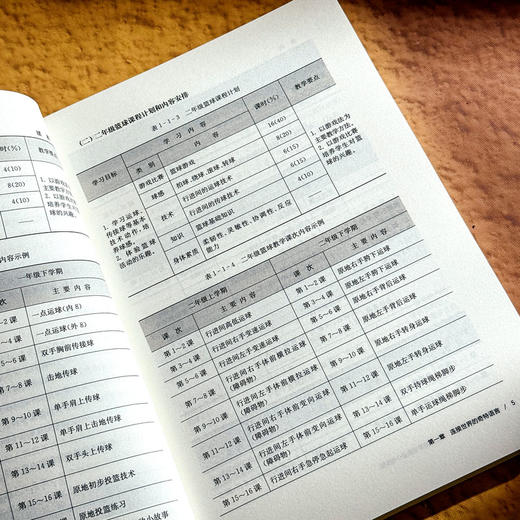 课时(%)
教学要点
4(10)
8(20)
4(10)
4(10)
—
内容示例
一年级下学期
课次
主要内容
第1~2课
一点运球(内8)
第3~4课
一点运球(外8)
第5~6课
双手胸前传接球
第7~8课
击地传球
第9~10课
单手肩上传球
第11~12课
单手肩上击地传球
第13~14课
双手头上传球
第15~16课
原地初步投篮技术
原地投篮练习
小故事
(二)二年级篮球课程计划和内容安排
表1-1-3 二年级篮球课程计划
学习目标
学习内容
课时(%)
教学要点
类别
内容
1. 学习运球、传接球等基本技术动作,培养球感。
2. 体验篮球活动的乐趣。
游戏比赛
篮球游戏
16(40)
球感
拍球、绕球、滚球、转球
8(20)
技术
行进间的运球技术
6(15)
行进间的传球技术
6(15)
知识
篮球基础知识
4(10)
身体素质
柔韧性、灵敏性、协调性、反应能力
—
1. 以游戏法为主要教学方法。
2. 以游戏比赛培养学生对篮球的兴趣。
表1-1-4 二年级篮球教学课次内容示例
二年级上学期
二年级下学期
课次
主要内容
课次
主要内容
第1~2课
行进间高低运球
第1~2课
原地右手胯下运球
第3~4课
行进间右手变速运球
第3~4课
原地左手胯下运球
第5~6课
行进间左手变速运球
第5~6课
原地右手背后运球
第7~8课
行进间右手体前横拉运球(障碍物)
第7~8课
原地左手背后运球
第9~10课
行进间左手体前横拉运球(障碍物)
第9~10课
原地右手转身运球
第11~12课
行进间右手体前变向运球(障碍物)
第11~12课
原地左手转身运球
第13~14课
行进间左手体前变向运球(障碍物)
第13~14课
双手持球绳梯脚步
第15~16课
行进间右手急停急起运球
第15~16课
单手运球绳梯脚步
第一章 连接世界的奇特语言 / 5